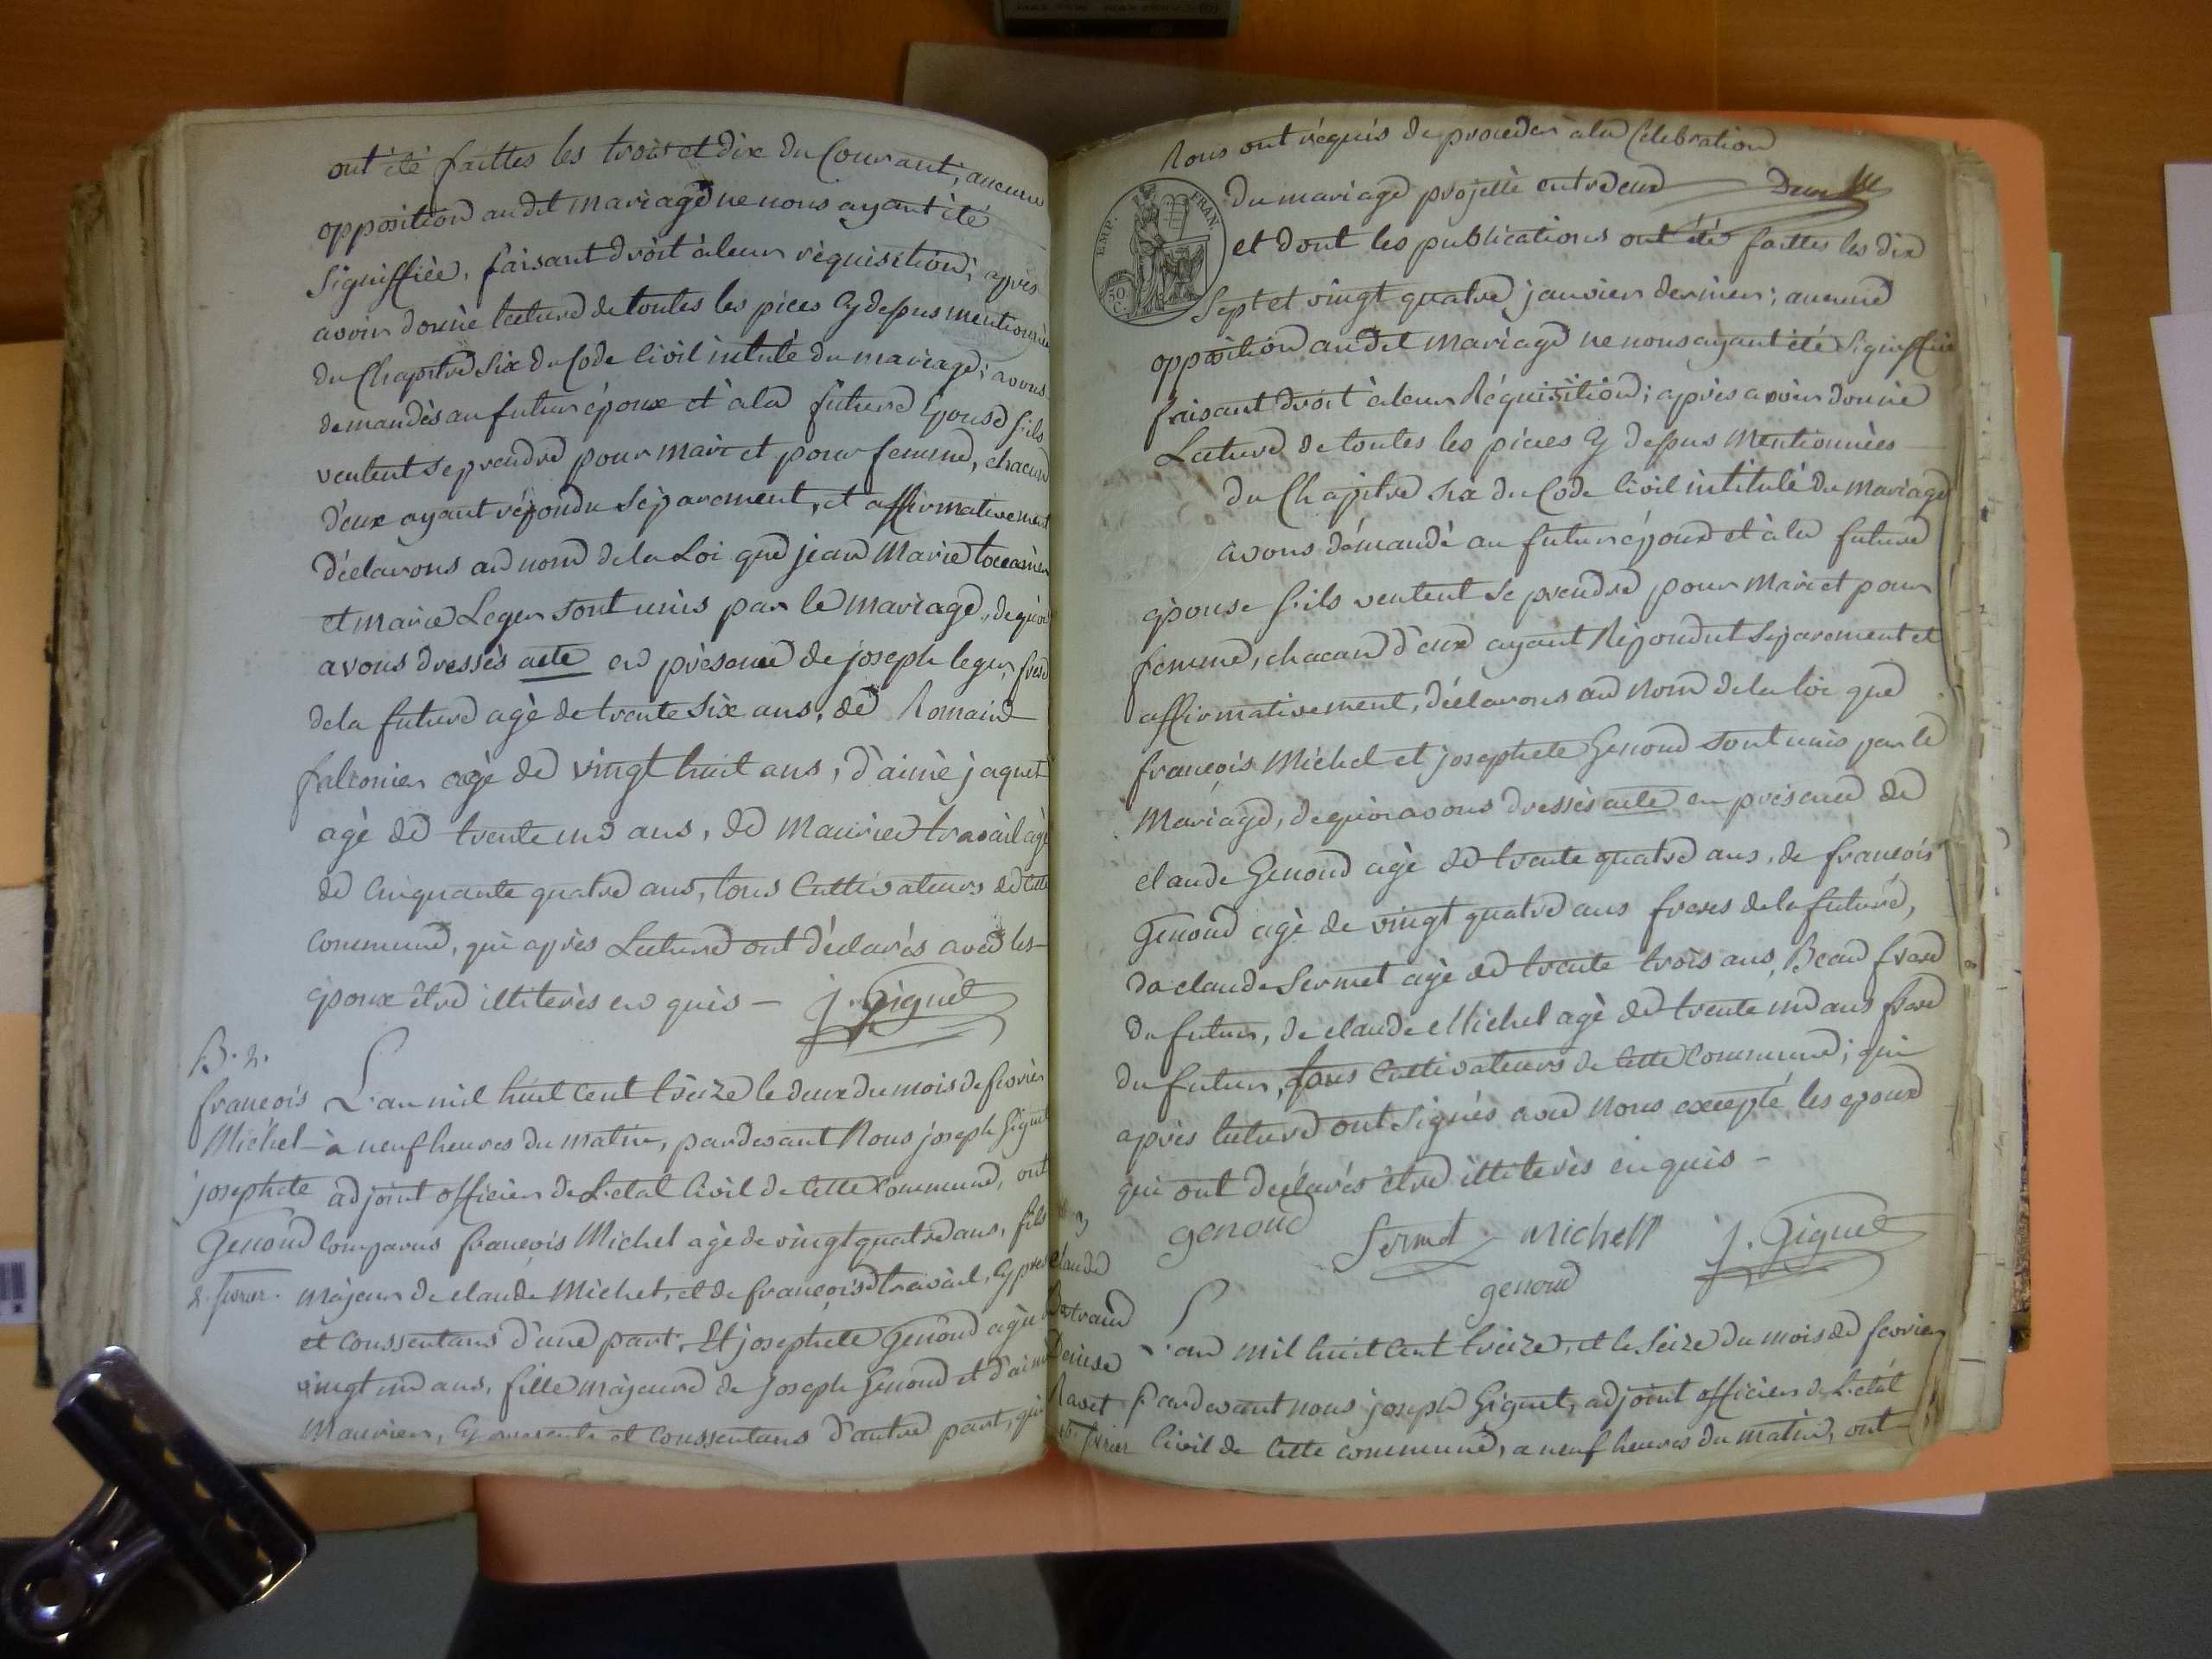 ont été faittes les trois et dix du Courant, aucune
opposition au dit mariage ne nous ayant été
Signiffiée, faisant droit à leur réquisition, après
avoir donné lecture de toutes les pices cy dessus mentionnée
du Chapitre six du Code Civil intulé du mariage; avons
demandés au futur époux et à la future Epouse s'ils
veulent se prendre pour mari et pour femme, chacun
d'eux ayant répondu séparement, et affirmativement
déclarons au nom de la Loi que jean Marie
et marie Leger sont unis par le mariage, de quoi
avons dressés acte en présence de joseph leger, frere
de la future agé de trente six ans, de Romain
falconier agé de vingt huit ans, d'aimé jaquet
agé de trente un ans, de Maurice travail agé
de Cinquante quatre ans, tous Cultivateurs de cette
Commune, qui après Lecture ont déclarés avec les
époux être illiterés en quis — J. Giguet
N. 2.
françois
Michel
josephete
Genoud
2. fevrier.
L'an mil huit Cent treize le deux du mois de fevrier
à neuf heures du matin, pardevant Nous joseph Giguet
adjoint officier de L'etat Civil de Cette Commune, ont
Comparus françois Michel agé de vingt quatre ans, fils
majeur de claude Michel, et de françoise travail, Cy presens
et Conssentans d'une part. Et josephete Genoud agée
vingt un ans, fille majeure de joseph Genoud et d'aimé
Maurier, Cy presents et Conssentans d'autre part, qui
Nous ont réquis de proceder à la Célébration
EMP. FRAN.
50 C.
du mariage projetté entre eux
et dont les publications ont été faittes les dix
Sept et vingt quatre janvier dernier; aucune
opposition au dit mariage ne nous ayant été signiffiée
faisant droit à leur Réquisition; après avoir donné
Lecture de toutes les pieces Cy dessus mentionnées
du Chapitre six du Code Civil intitulé du mariage
avons démandé au futur époux et à la future
épouse s'ils veulent se prendre pour Mari et pour
femme, chacun d'eux ayant Répondut Séparement et
affirmativement, déclarons au nom de la loi que
françois Michel et josephete Genoud sont unis par le
Mariage, de quoi avons dressés acte en présence de
claude Genoud agé de trente quatre ans, de françois
Genoud agé de vingt quatre ans freres de la future,
de claude Sermet agé de trente trois ans, Beau frere
du futur, de claude Michel agé de trente un ans frere
du futur, tous Cultivateurs de Cette Commune; qui
après lecture ont signés avec Nous excepté les epoux
qui ont déclarés être illiterés en quis —
genoud Sermet Michell J. Giguet
genoud
3
claude
Bertrand
Denise
Ravet
16. fevrier
L'an mil huit Cent treize, et le seize du mois de fevrier
Pardevant nous joseph Giguet, adjoint officier de L'etat
Civil de Cette commune, a neuf heures du matin, ont